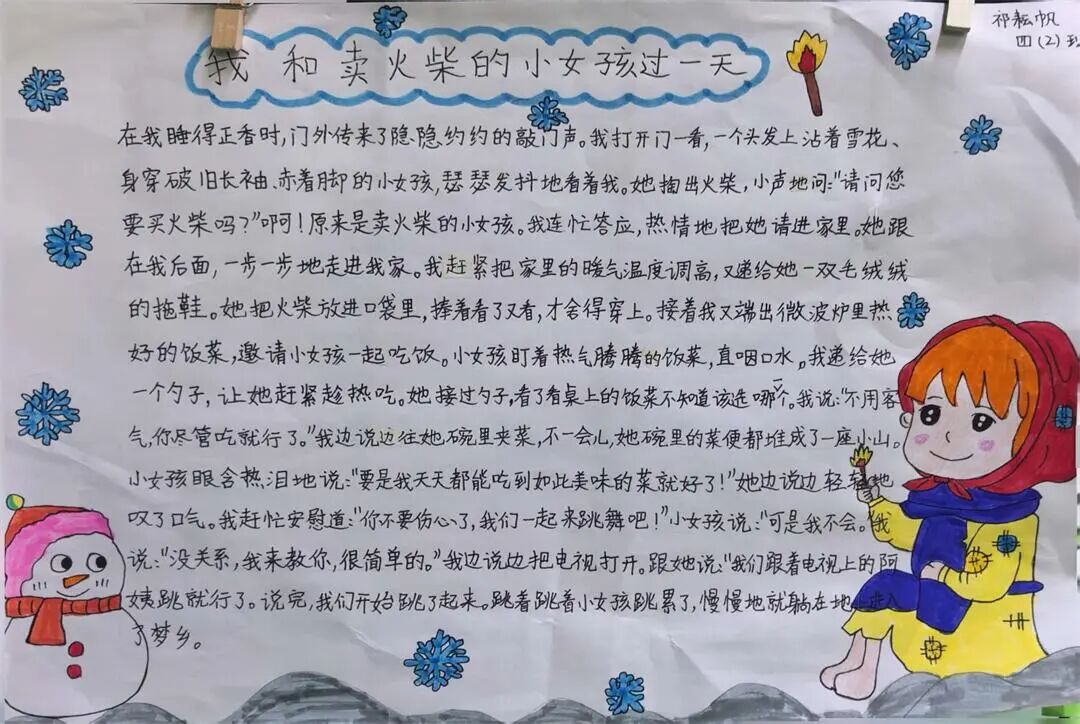 祁耘帆
四(2)班
我和卖火柴的小女孩过一天
在我睡得正香时,门外传来了隐隐约约的敲门声。我打开门一看,一个头发上沾着雪花、
身穿破旧长袖、赤着脚的小女孩,瑟瑟发抖地看着我。她掏出火柴,小声地问:“请问您
要买火柴吗?”啊!原来是卖火柴的小女孩。我连忙答应,热情地把她请进家里。她跟
在我后面,一步一步地走进我家。我赶紧把家里的暖气温度调高,又递给她一双毛绒绒
的拖鞋。她把火柴放进口袋里,捧着看了又看,才舍得穿上。接着我又端出微波炉里热
好的饭菜,邀请小女孩一起吃饭。小女孩盯着热气腾腾的饭菜,直咽口水。我递给她
一个勺子,让她赶紧趁热吃。她接过勺子,看了看桌上的饭菜不知道该选哪一个。我说:“不用客
气,你尽管吃就行了。”我边说边往她碗里夹菜,不一会儿,她碗里的菜便都堆成了一座小山。
小女孩眼含热泪地说:“要是我天天都能吃到如此美味的菜就好了!”她边说边轻轻地
叹了口气。我赶忙安慰道:“你不要伤心了,我们一起来跳舞吧!”小女孩说:“可是我不会。”我
说:“没关系,我来教你,很简单的。”我边说边把电视打开。跟她说:“我们跟着电视上的阿
姨跳就行了。说完,我们开始跳了起来。跳着跳着小女孩跳累了,慢慢地就躺在地上进入
了梦乡。